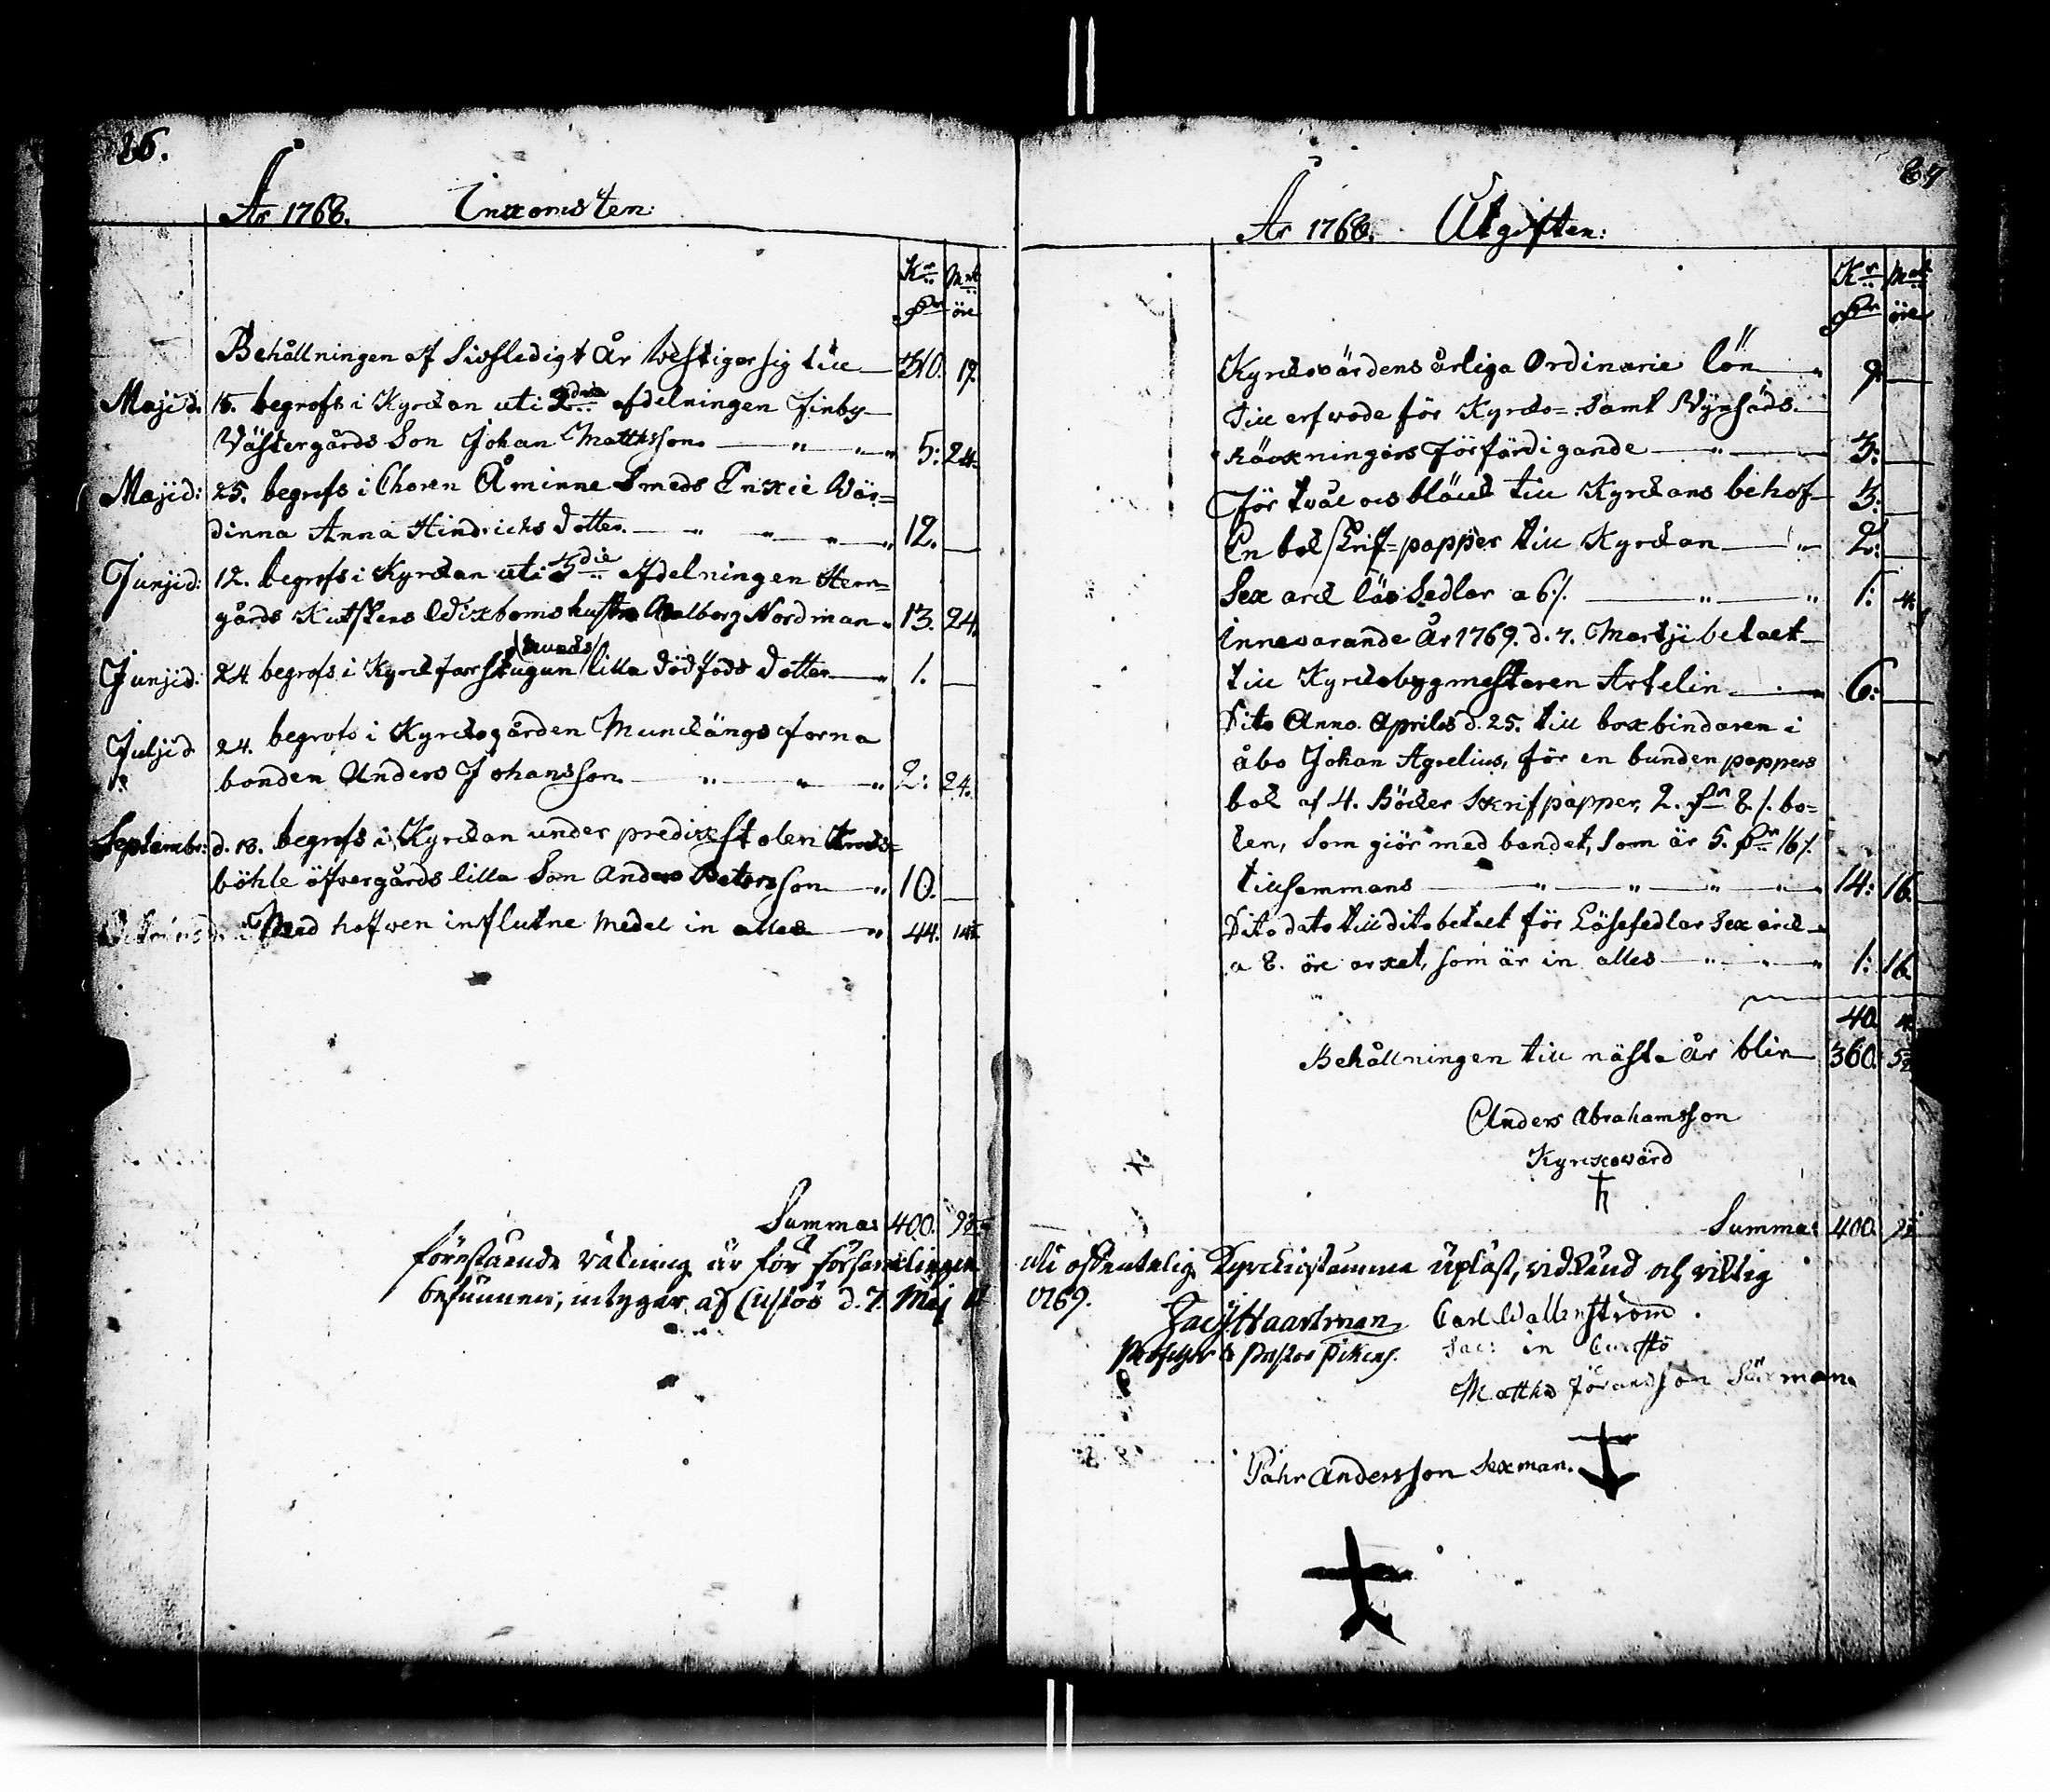 26.
År 1768. Inkomsten:
Kr Mt
Pr öre
Behållningen af sidstledigt År bestiger sig till 310. 17.
Maji d. 15. begrofs i Kyrckan uti 2dra afdelningen Finby
Västergårds Son Johan Mattsson 5: 24.
Maji d: 25. begrofs i Choren Åminne Smeds Enkie Wär=
dinna Anna Hindrichs dotter. 12.
Junji d: 12. begrofs i Kyrckan uti 3die afdelningen Herr=
gårds Kutskens Wixboms hustru Walborg Nordman 13. 24.
Junji d: 24. begrofs i Kyrck farstugun lilla dödföds dotter 1.
Julji d 24. begrofs i Kyrckogården Munckängs forna
bonden Anders Johansson 2: 24.
Septembr: d. 18. begrofs i Kyrckan under predikstolen
böhle öfvergårds lilla Son Anders Petersson 10.
Med hofwen influtne Medel in alles 44.
Summa: 400.
förestående räkning är för församlingen
befunnen, intygar af Custös d. 7. Maj
27
År 1768. Utgiften:
Kr Mt
Pr öre
Kyrckovärdens årliga Ordinarie lön 9.
Till arfwode för Kyrcko= samt
Räckningars förfärdigande 3:
För tvål och bläck till Kyrckans behof 3:
En bok skrif=papper till Kyrckan 2:
Sex arck lös Sedlar a 6/. 1: 4.
Innevarande År 1769. d. 7. Martji betalt
till Kyrckobygmestaren Artelin 6:
Dito Anno. Apriles d. 25. till bokbindaren i
åbo Johan Agrelius, för en bunden pappers
bok af 4. Böcker Skrifpapper, 2. Pr 8/. bo=
ken, Som giör med bandet, Som är 5. Pr 16/.
tillsammans 14: 16.
Dito dato till dito betalt för Läsesedlar Sex arck
a 8. öre arket, som är in alles 1: 16.
40. 4.
Behållningen till nästa År blir 360: 5½
Anders Abrahamsson
Kyrckovärd
Summa: 400.
uti offentelig Kyrckiostämma upläst, vidkänd och richtig
1769.
Jac Haartman Carl Wallenström.
Professor & Pastor Pikens. Sac: in Custö
Matths Jöransson Säxman
Pähr Andersson Sexman.